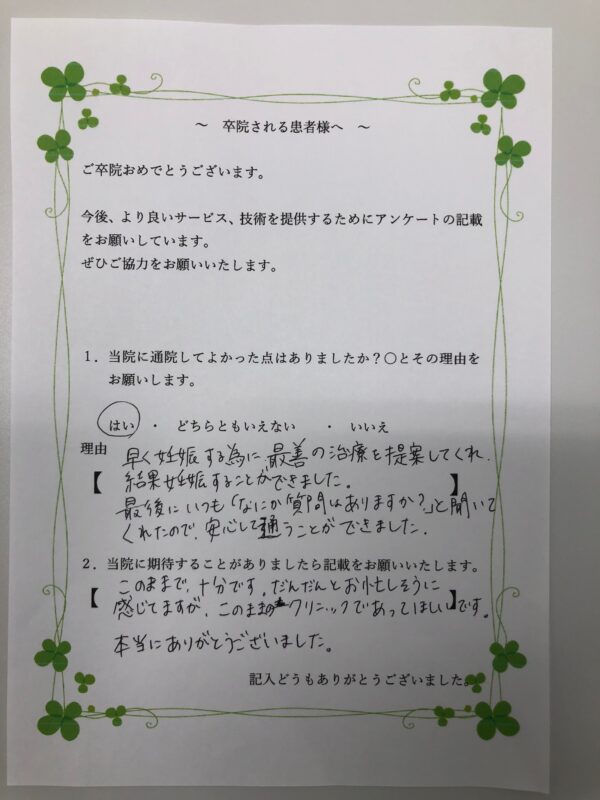 ～ 卒院される患者様へ ～
ご卒院おめでとうございます。
今後、より良いサービス、技術を提供するためにアンケートの記載
をお願いしています。
ぜひご協力をお願いいたします。
1．当院に通院してよかった点はありましたか？○とその理由を
お願いします。
はい ・ どちらともいえない ・ いいえ
理由
【 早く妊娠する為に、最善の治療を提案してくれ、
結果妊娠することができました。 】
最後にいつも「なにか質問はありますか？」と聞いて
くれたので、安心して通うことができました。
2．当院に期待することがありましたら記載をお願いいたします。
【 このままで、十分です。だんだんとお忙しそうに
感じてますが、このままのクリニックであってほしい】です。
本当にありがとうございました。
記入どうもありがとうございました。